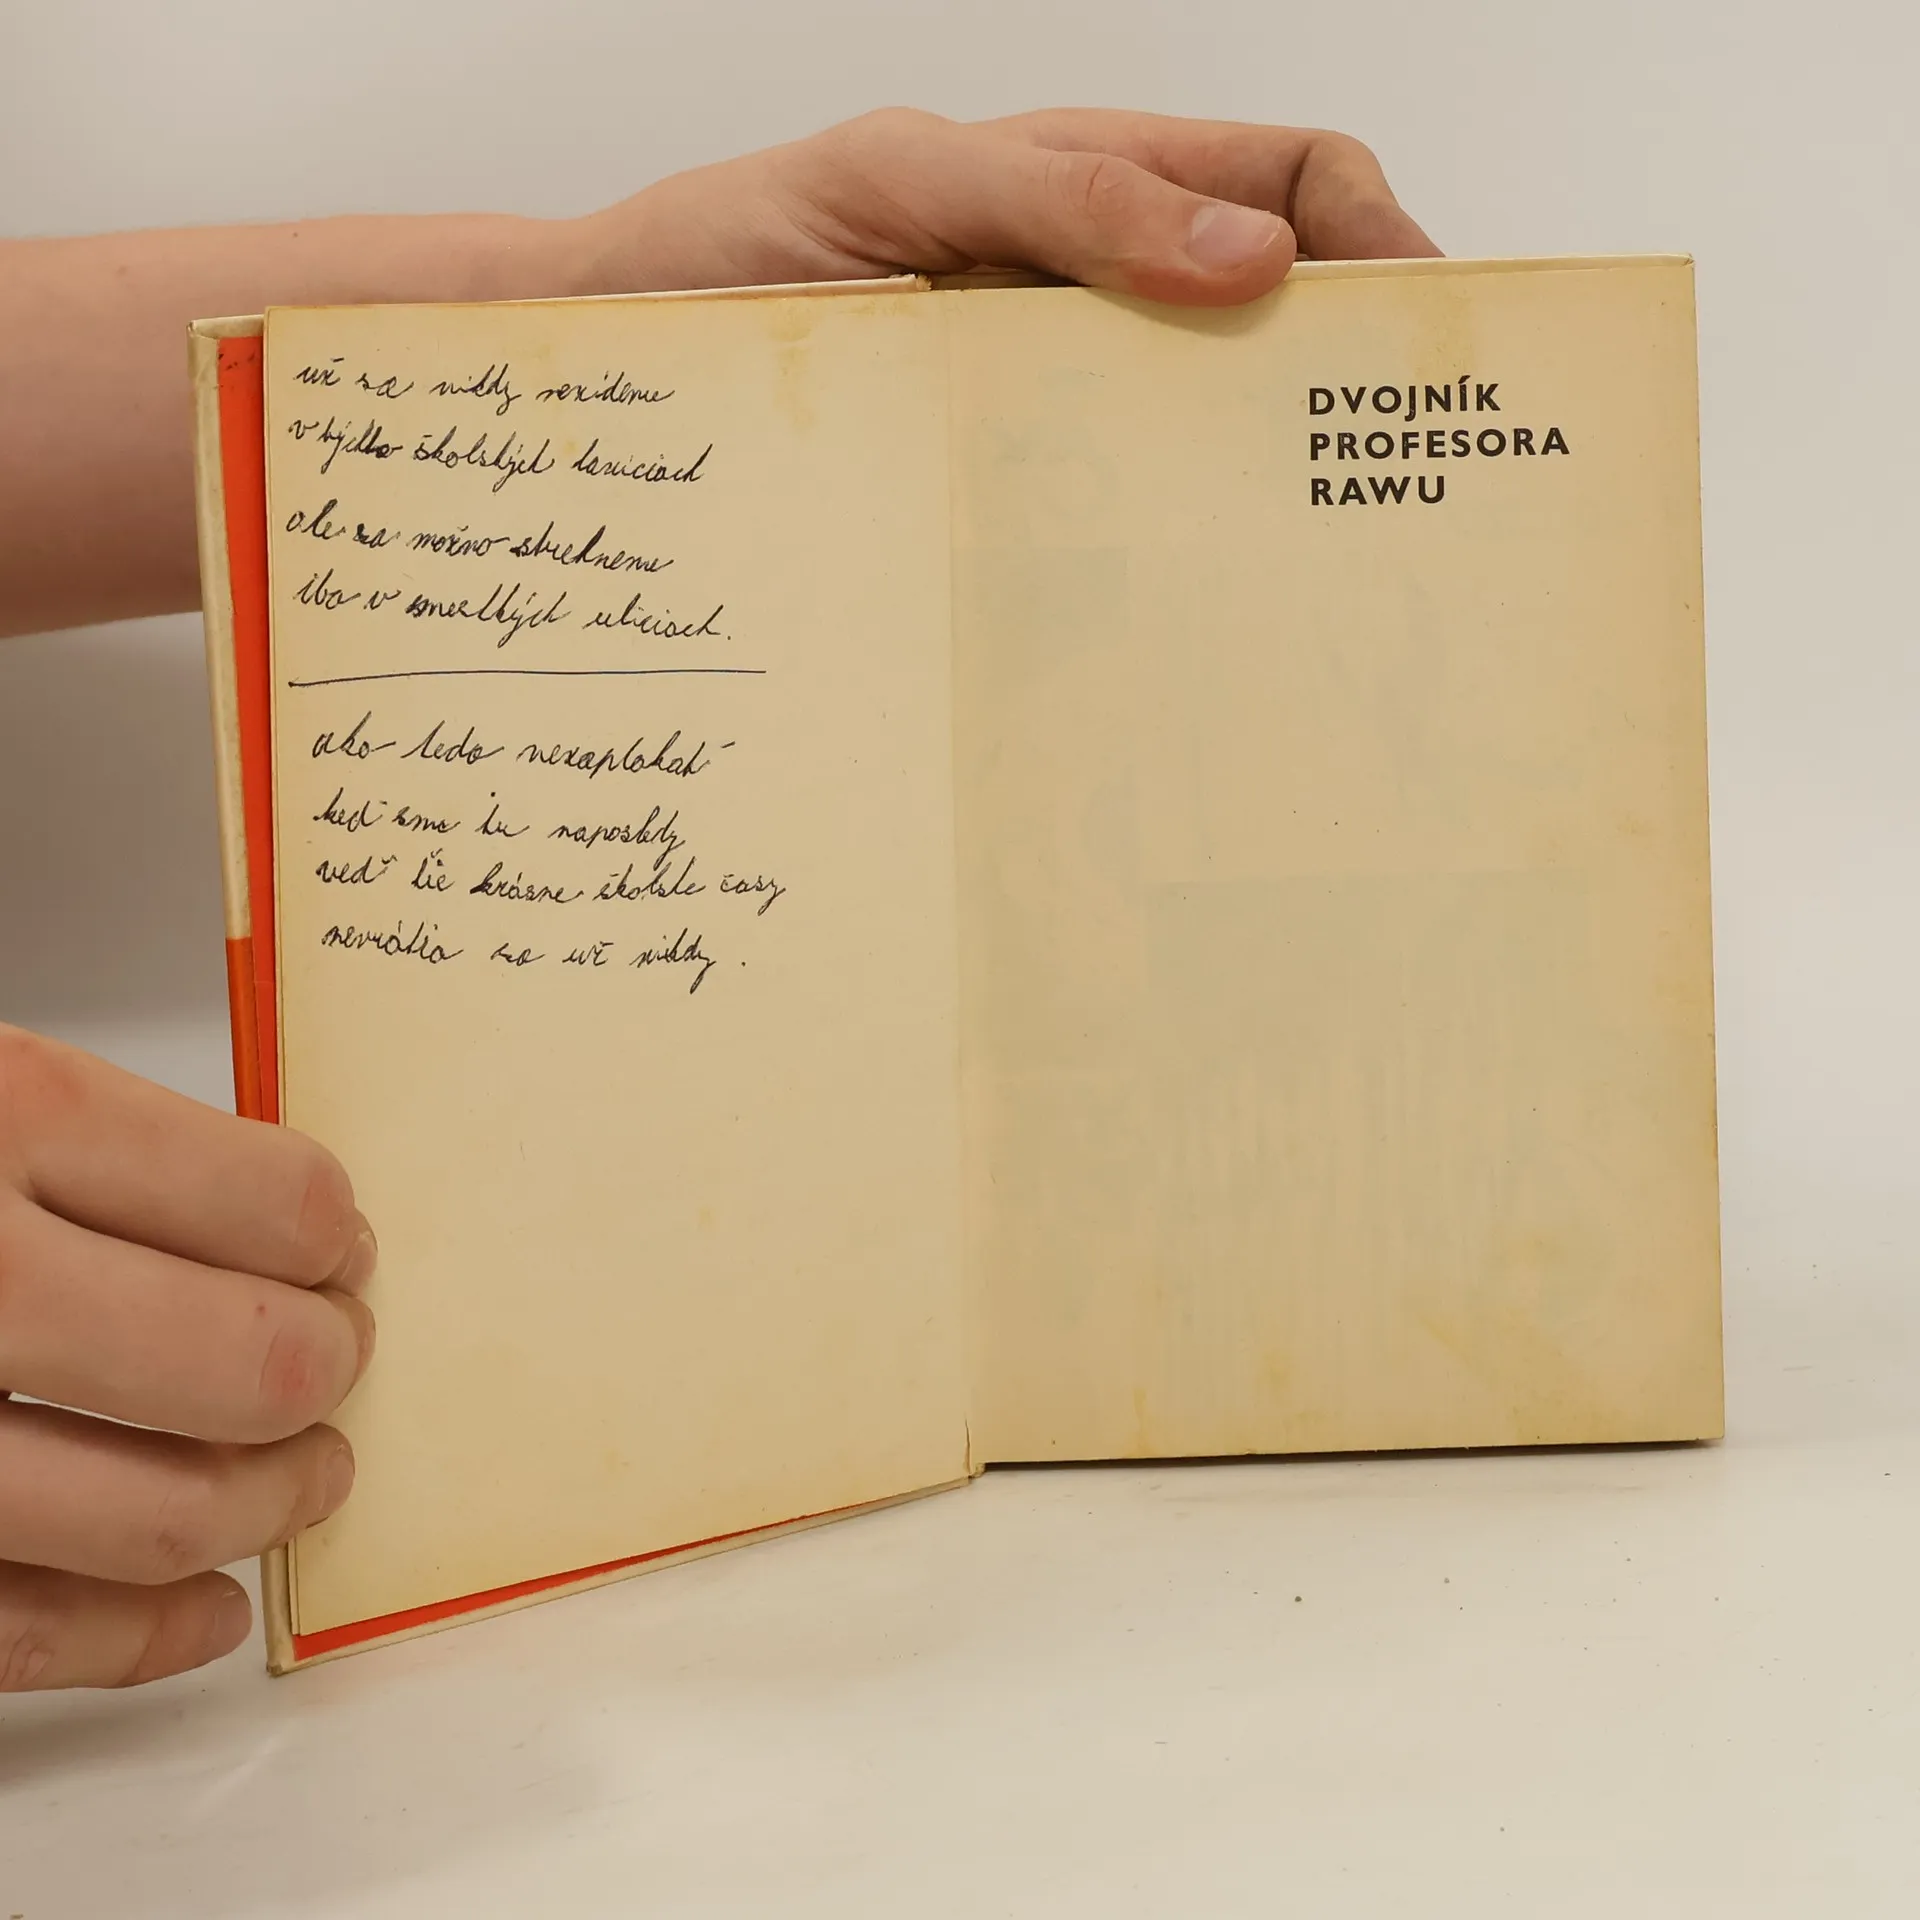 už sa nikdy nezídeme
v týchto školských laviciach
ale sa možno stretneme
iba v mestkých uliciach.
ako teda nezaplakať
keď sme tu naposledy
veď tie krásne školské časy
nevrátia sa už nikdy.
DVOJNÍK
PROFESORA
RAWU